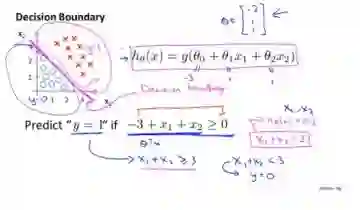 Decision Boundary
x₂
3
2
1
y=0 1 2 3 x₁
→ h_θ(x) = g(θ₀ + θ₁x₁ + θ₂x₂)
-3 1 1
Decision boundary
Predict "y = 1" if -3 + x₁ + x₂ ≥ 0
θᵀx
→ x₁ + x₂ ≥ 3
x₁, x₂
x₁ + x₂ = 3
x₁ + x₂ < 3
y=0